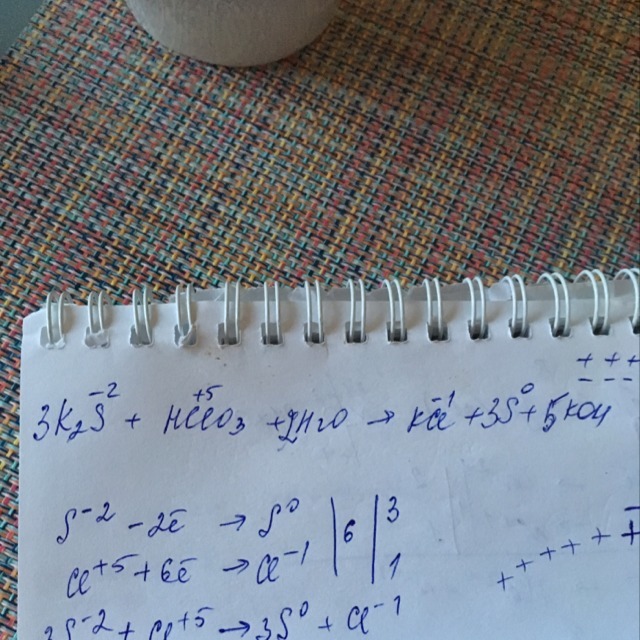 + + +
- - -
3K₂S⁻² + HCl⁺⁵O₃ + 2H₂O → KCl⁻¹ + 3S⁰ + 5KOH
S⁻² - 2ē → S⁰ | 6 | 3
Cl⁺⁵ + 6ē → Cl⁻¹ | 1
+ + + + + +
3S⁻² + Cl⁺⁵ → 3S⁰ + Cl⁻¹